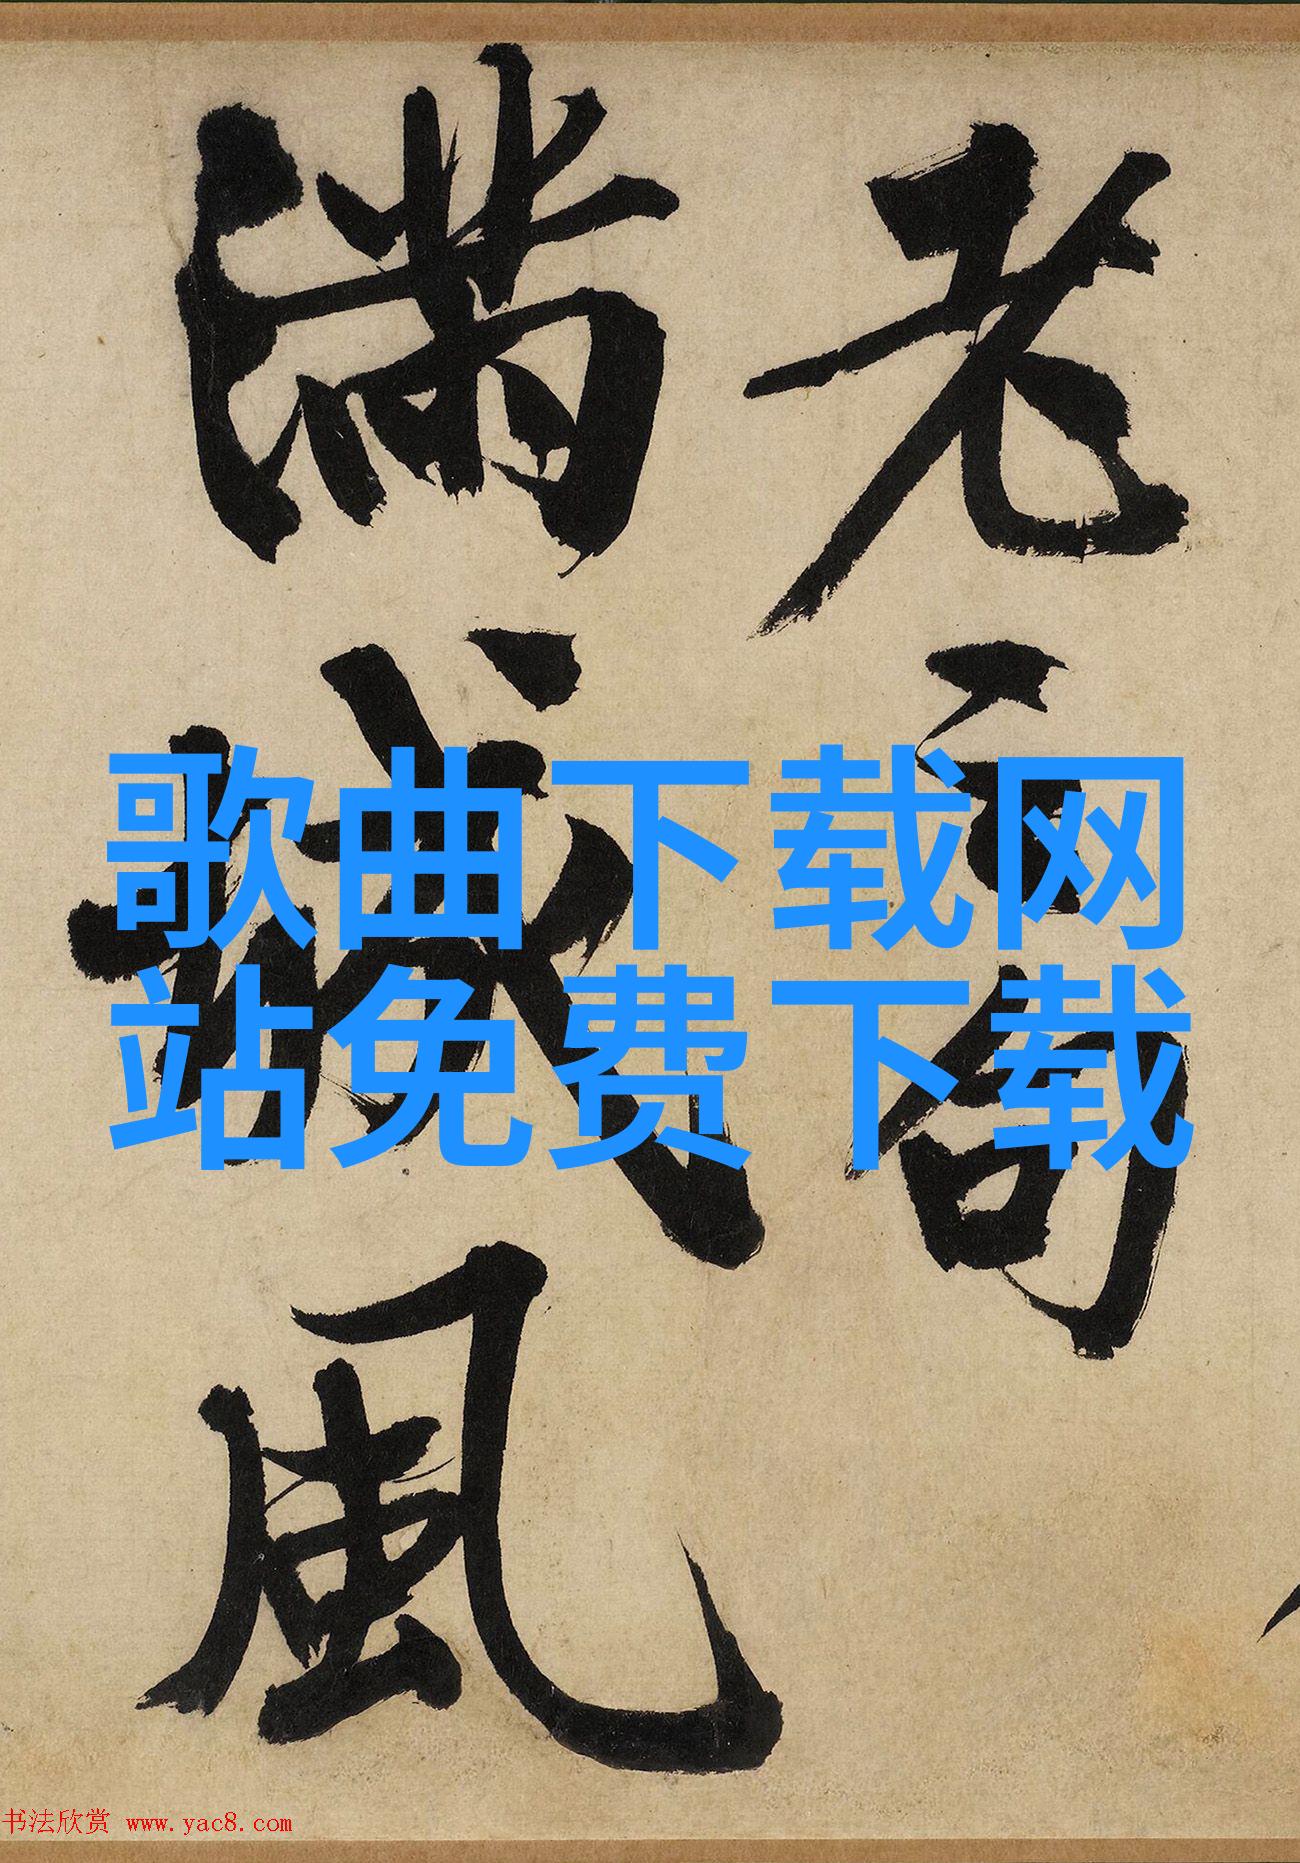 歌曲下载网
站免费下载
老
句
滿城風
书法欣赏 www.yac8.com